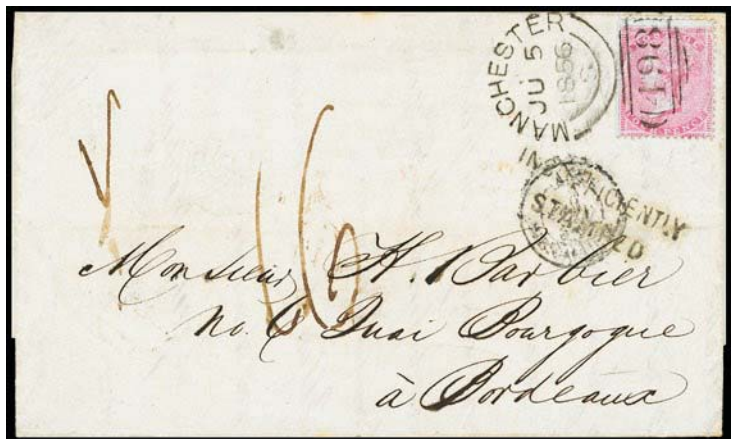 MANCHESTER
JU 5
1856
498
INSUFFICIENTLY
STAMPED
16
Monsieur H. Barbier
No. 6 Quai Bourgogne
à Bordeaux